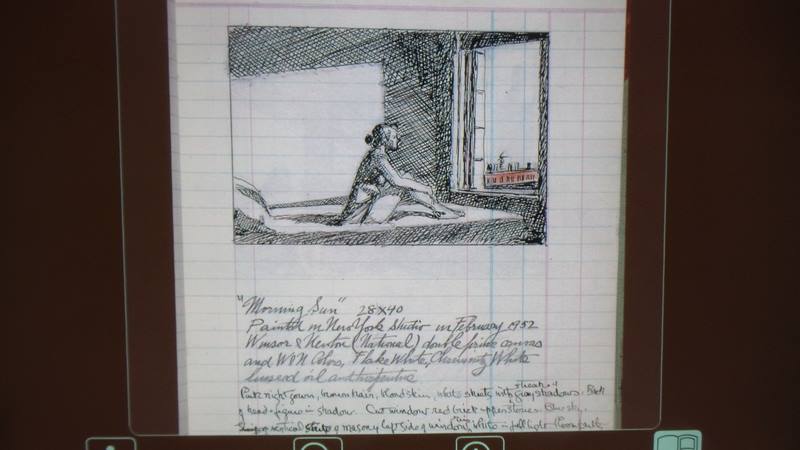 "Morning Sun" 28X40
Painted in New York Studio in February 1952
Winsor & Newton (National) double prime canvas
and W&N Colors, Flake White, Chremnitz White
linseed oil and turpentine
streak of
Pink night gown, brown hair, blond skin, white sheets with gray shadows. Back
of head & figure in shadow. Out window red brick upper stories. Blue sky.
of vertical of masonry left side of window, white in full light. Room